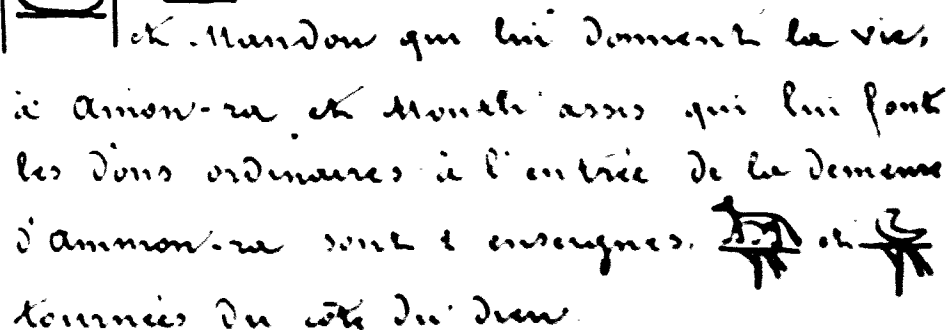 et Mandou qui lui donnent la vie,
à Amon-ra et Mouth assis qui lui font
les dons ordinaires à l'entrée de la demeure
d'Ammon-ra sont 2 enseignes. et
tournées du côté du dieu